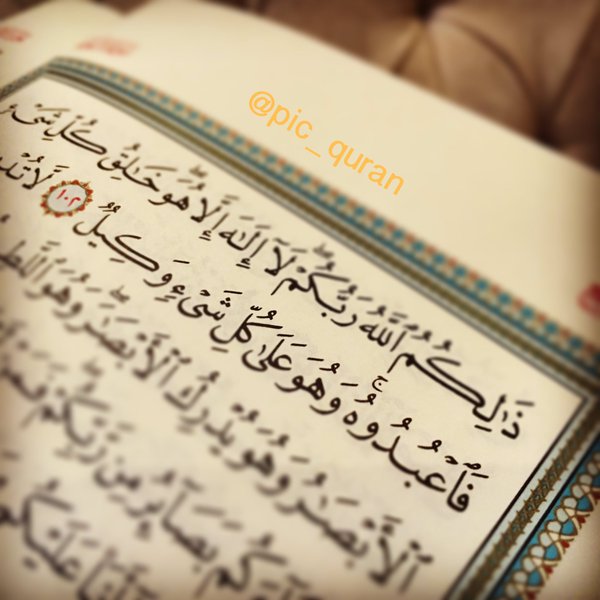 @pic_quran
ذَٰلِكُمُ ٱللَّهُ رَبُّكُمْ ۖ لَآ إِلَٰهَ إِلَّا هُوَ ۖ خَٰلِقُ كُلِّ شَىْءٍ
فَٱعْبُدُوهُ ۚ وَهُوَ عَلَىٰ كُلِّ شَىْءٍ وَكِيلٌ ١٠٢ لَّا
ٱلْأَبْصَٰرُ وَهُوَ يُدْرِكُ ٱلْأَبْصَٰرَ ۖ وَهُوَ
بَصَآئِرُ مِن رَّبِّكُمْ ۖ
عَلَيْكُم